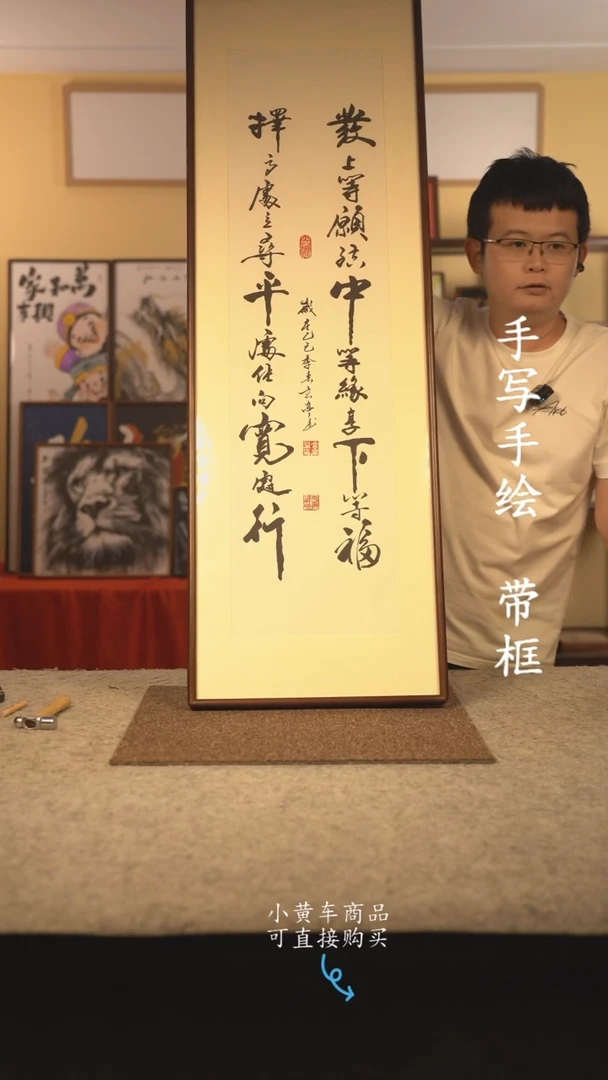 發上等願結中等緣享下等福
擇高處立尋平處住向寬處行
家和萬
事興
手写手绘 带框
小黄车商品
可直接购买